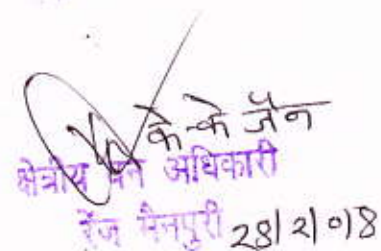 के-के जैन
क्षेत्रीय वन अधिकारी
रेंज मैनपुरी 28/2/018